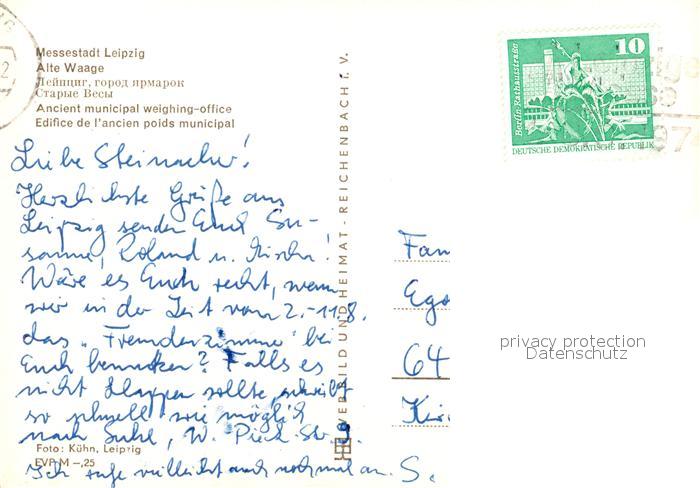 Messestadt Leipzig
Alte Waage
Лейпциг, город ярмарок
Старые Весы
Ancient municipal weighing-office
Edifice de l'ancien poids municipal
Liebe Steinacher!
Herzlichste Grüße aus
Leipzig senden Euch Su-
sanne, Roland u. Mischa!
Wäre es Euch recht, wenn
wir in der Zeit vom 2.-11.8.
das "Fremdenzimmer" bei
Euch benutzen? Falls es
nicht klappen sollte, schreibt
so schnell wie möglich
nach Suhl, W. Pieck-Str.
Ich rufe vielleicht auch nochmal an. S.
Foto: Kühn, Leipzig
EVP M -,25
BILD UND HEIMAT · REICHENBACH I. V.
10
Berlin, Rathausstraße
DEUTSCHE DEMOKRATISCHE REPUBLIK
Fam
64
privacy protection
Datenschutz